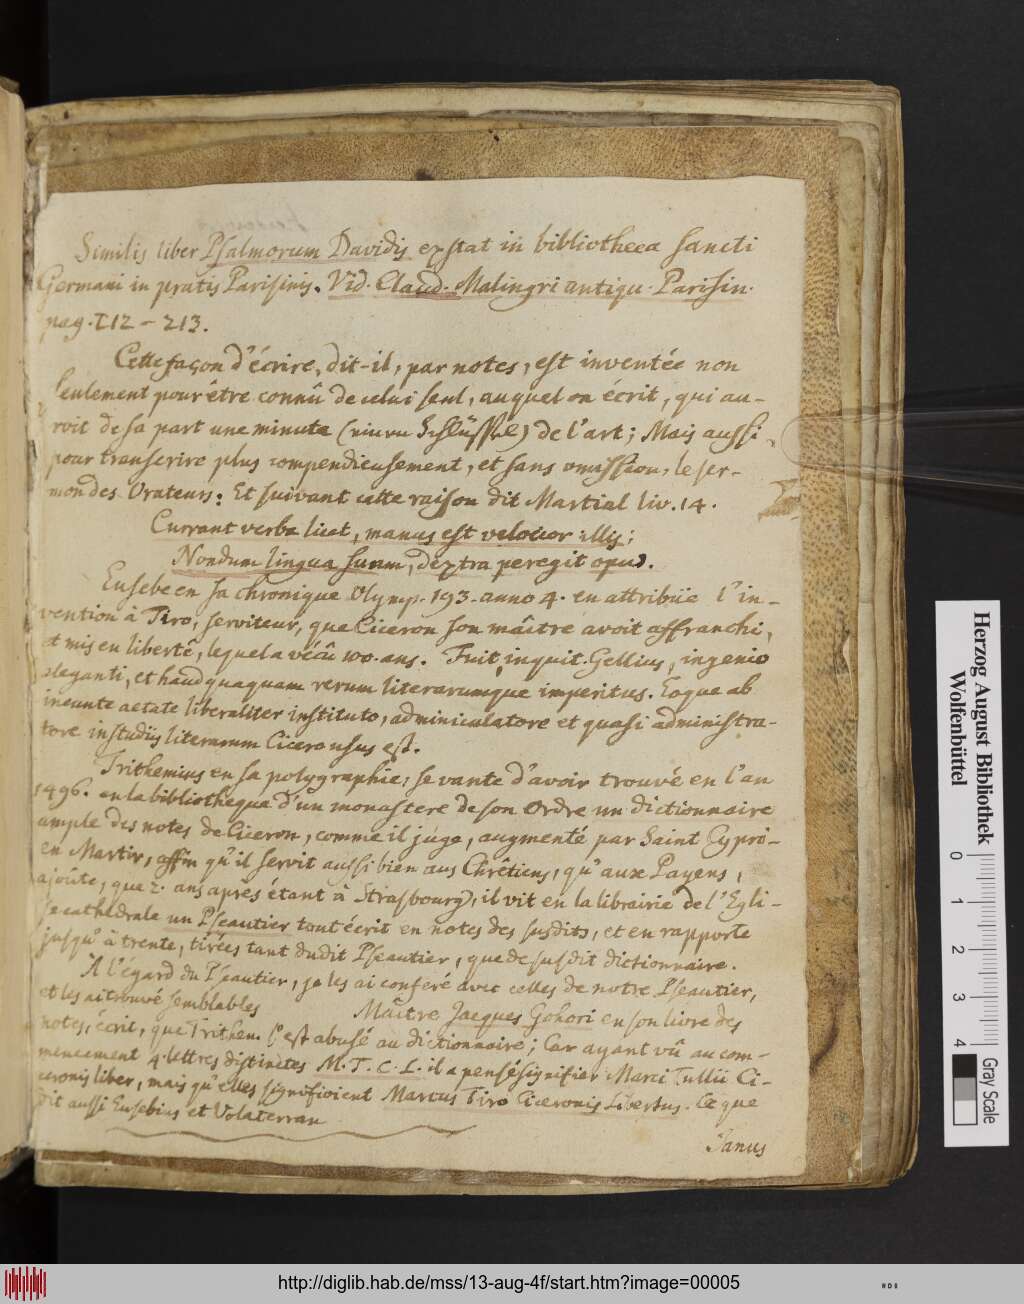 Similis liber Psalmorum Davidis exstat in bibliotheca sancti
Germani in pratis Parisinis. Vid. Claud. Malingri antiqu. Parisin.
pag. 212 - 213.
Cette façon d'écrire, dit-il, par notes, est inventée non
seulement pour être connû de celui seul, auquel on écrit, qui au-
roit de sa part une minute (Schlüssel) de l'art; Mais aussi
pour transcrire plus compendieusement, et sans omission, le ser-
mon des Orateurs: Et suivant cette raison dit Martial liv. 14.
Currant verba licet, manus est velocior illis;
Nondum lingua suum, dextra peregit opus.
Eusebe en sa chronique Olymp. 193. anno 4. en attribüe l'in-
vention à Tiro, serviteur, que Ciceron son maître avoit affranchi,
et mis en liberté, lequel a vécû 100. ans. Fuit, inquit Gellius, ingenio
eleganti, et haudquaquam rerum literarumque imperitus. Eoque ab
ineunte aetate liberaliter instituto, adminiculatore et quasi administra-
tore in studiis literarum Cicero usus est.
Trithemius en sa polygraphie, se vante d'avoir trouvé en l'an
1496. en la bibliotheque d'un monastere de son Ordre un dictionnaire
ample des notes de Ciceron, comme il juge, augmenté par Saint Cypri-
en Martir, affin qu'il servit aussi bien aus Chrêtiens, qu'aux Payens,
ajoûte, que 2. ans aprés étant à Strasbourg, il vit en la librairie de l'Egli-
se cathédrale un Pseautier tout écrit en notes des susdits, et en rapporte
jusqu'à trente, tirées tant dudit Pseautier, que de susdit dictionnaire.
A l'égard du Pseautier, je les ai conferé avec celles de notre Pseautier,
et les ai trouvé semblables Maître Jacques Gohori en son livre des
notes, écrit, que Trithem. s'est abusé au dictionnaire; Car ayant vû au com-
mencement 4. lettres distinctes M. T. C. L. il a pensé signifier Marci Tullii Ci-
ceronis liber, mais qu'elles signifioient Marcus Tiro Ciceronis Libertus. Ce que
dit aussi Eusebius et Volaterran
Janus
Herzog August Bibliothek
Wolfenbüttel
0 1 2 3 4
Gray Scale
http://diglib.hab.de/mss/13-aug-4f/start.htm?image=00005